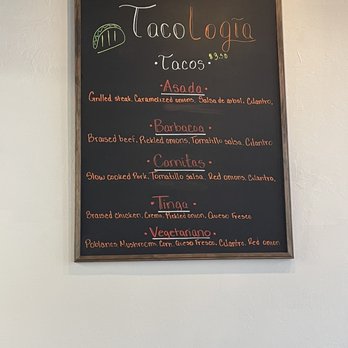 TacoLogía
• Tacos • $3.50
• Asada •
Grilled steak, Caramelized onions, Salsa de arbol, Cilantro,
• Barbacoa •
Braised beef, Pickled onions, Tomatillo salsa, Cilantro
• Carnitas •
Slow cooked Pork, Tomatillo salsa, Red onions, Cilantro,
• Tinga •
Braised chicken, Crema, Pickled onion, Queso Fresco
• Vegetariano •
Poblanos Mushrooms, Corn, Queso Fresco, Cilantro, Red onion